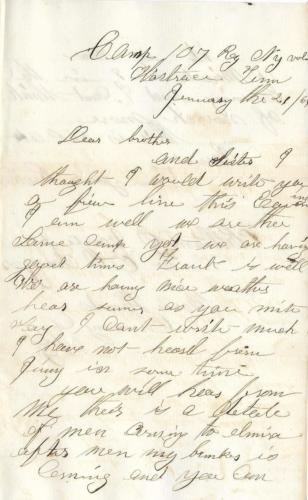 Camp 107 Reg Ny vol
Tenn
January the 21/64
Dear brother
and Sister I
thought I would write you
a few line this Evening
I am well we are the
Same camp yet we are having
good times Frank is well
We are having nice weather
hear sumer as you mite
say I Cant write much
I have not heard from
in some time
you will hear from
me their is a detale
of men coming to elmira
after men my bunkes is
Coming and you can